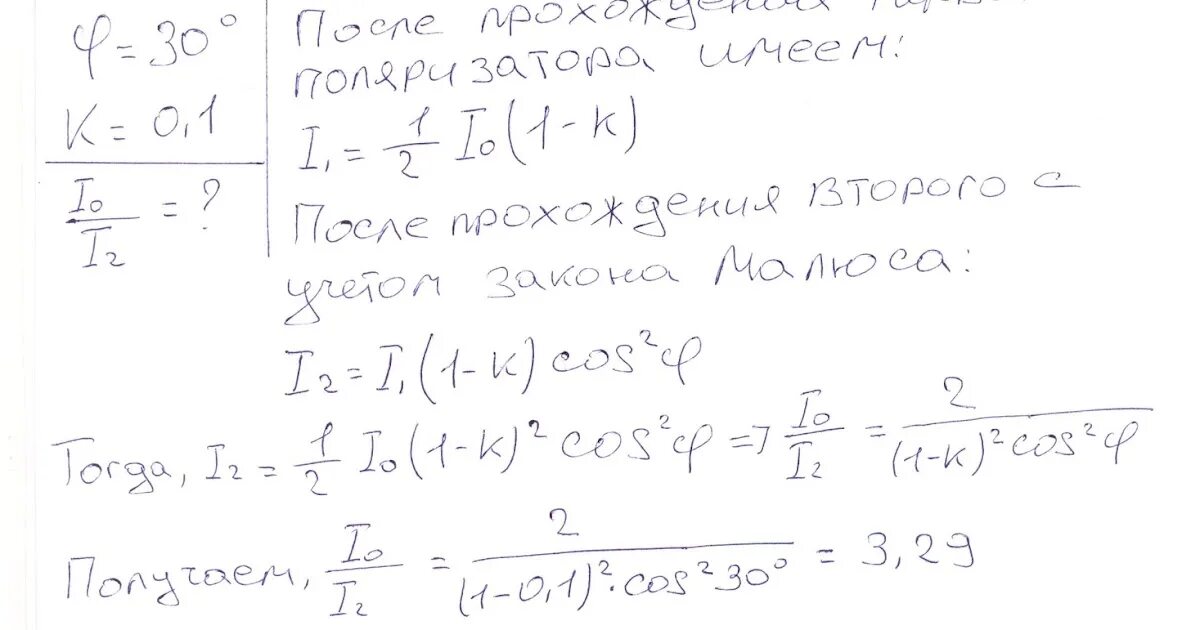 φ = 30°
K = 0,1
I₀/I₂ = ?
После прохождения
поляризатора имеем:
I₁ = 1/2 I₀(1-K)
После прохождения второго с
учетом закона Малюса:
I₂ = I₁(1-K) cos²φ
Тогда, I₂ = 1/2 I₀(1-K)² cos²φ => I₀/I₂ = 2/((1-K)² cos²φ)
Получаем, I₀/I₂ = 2/((1-0,1)²·cos²30°) = 3,29